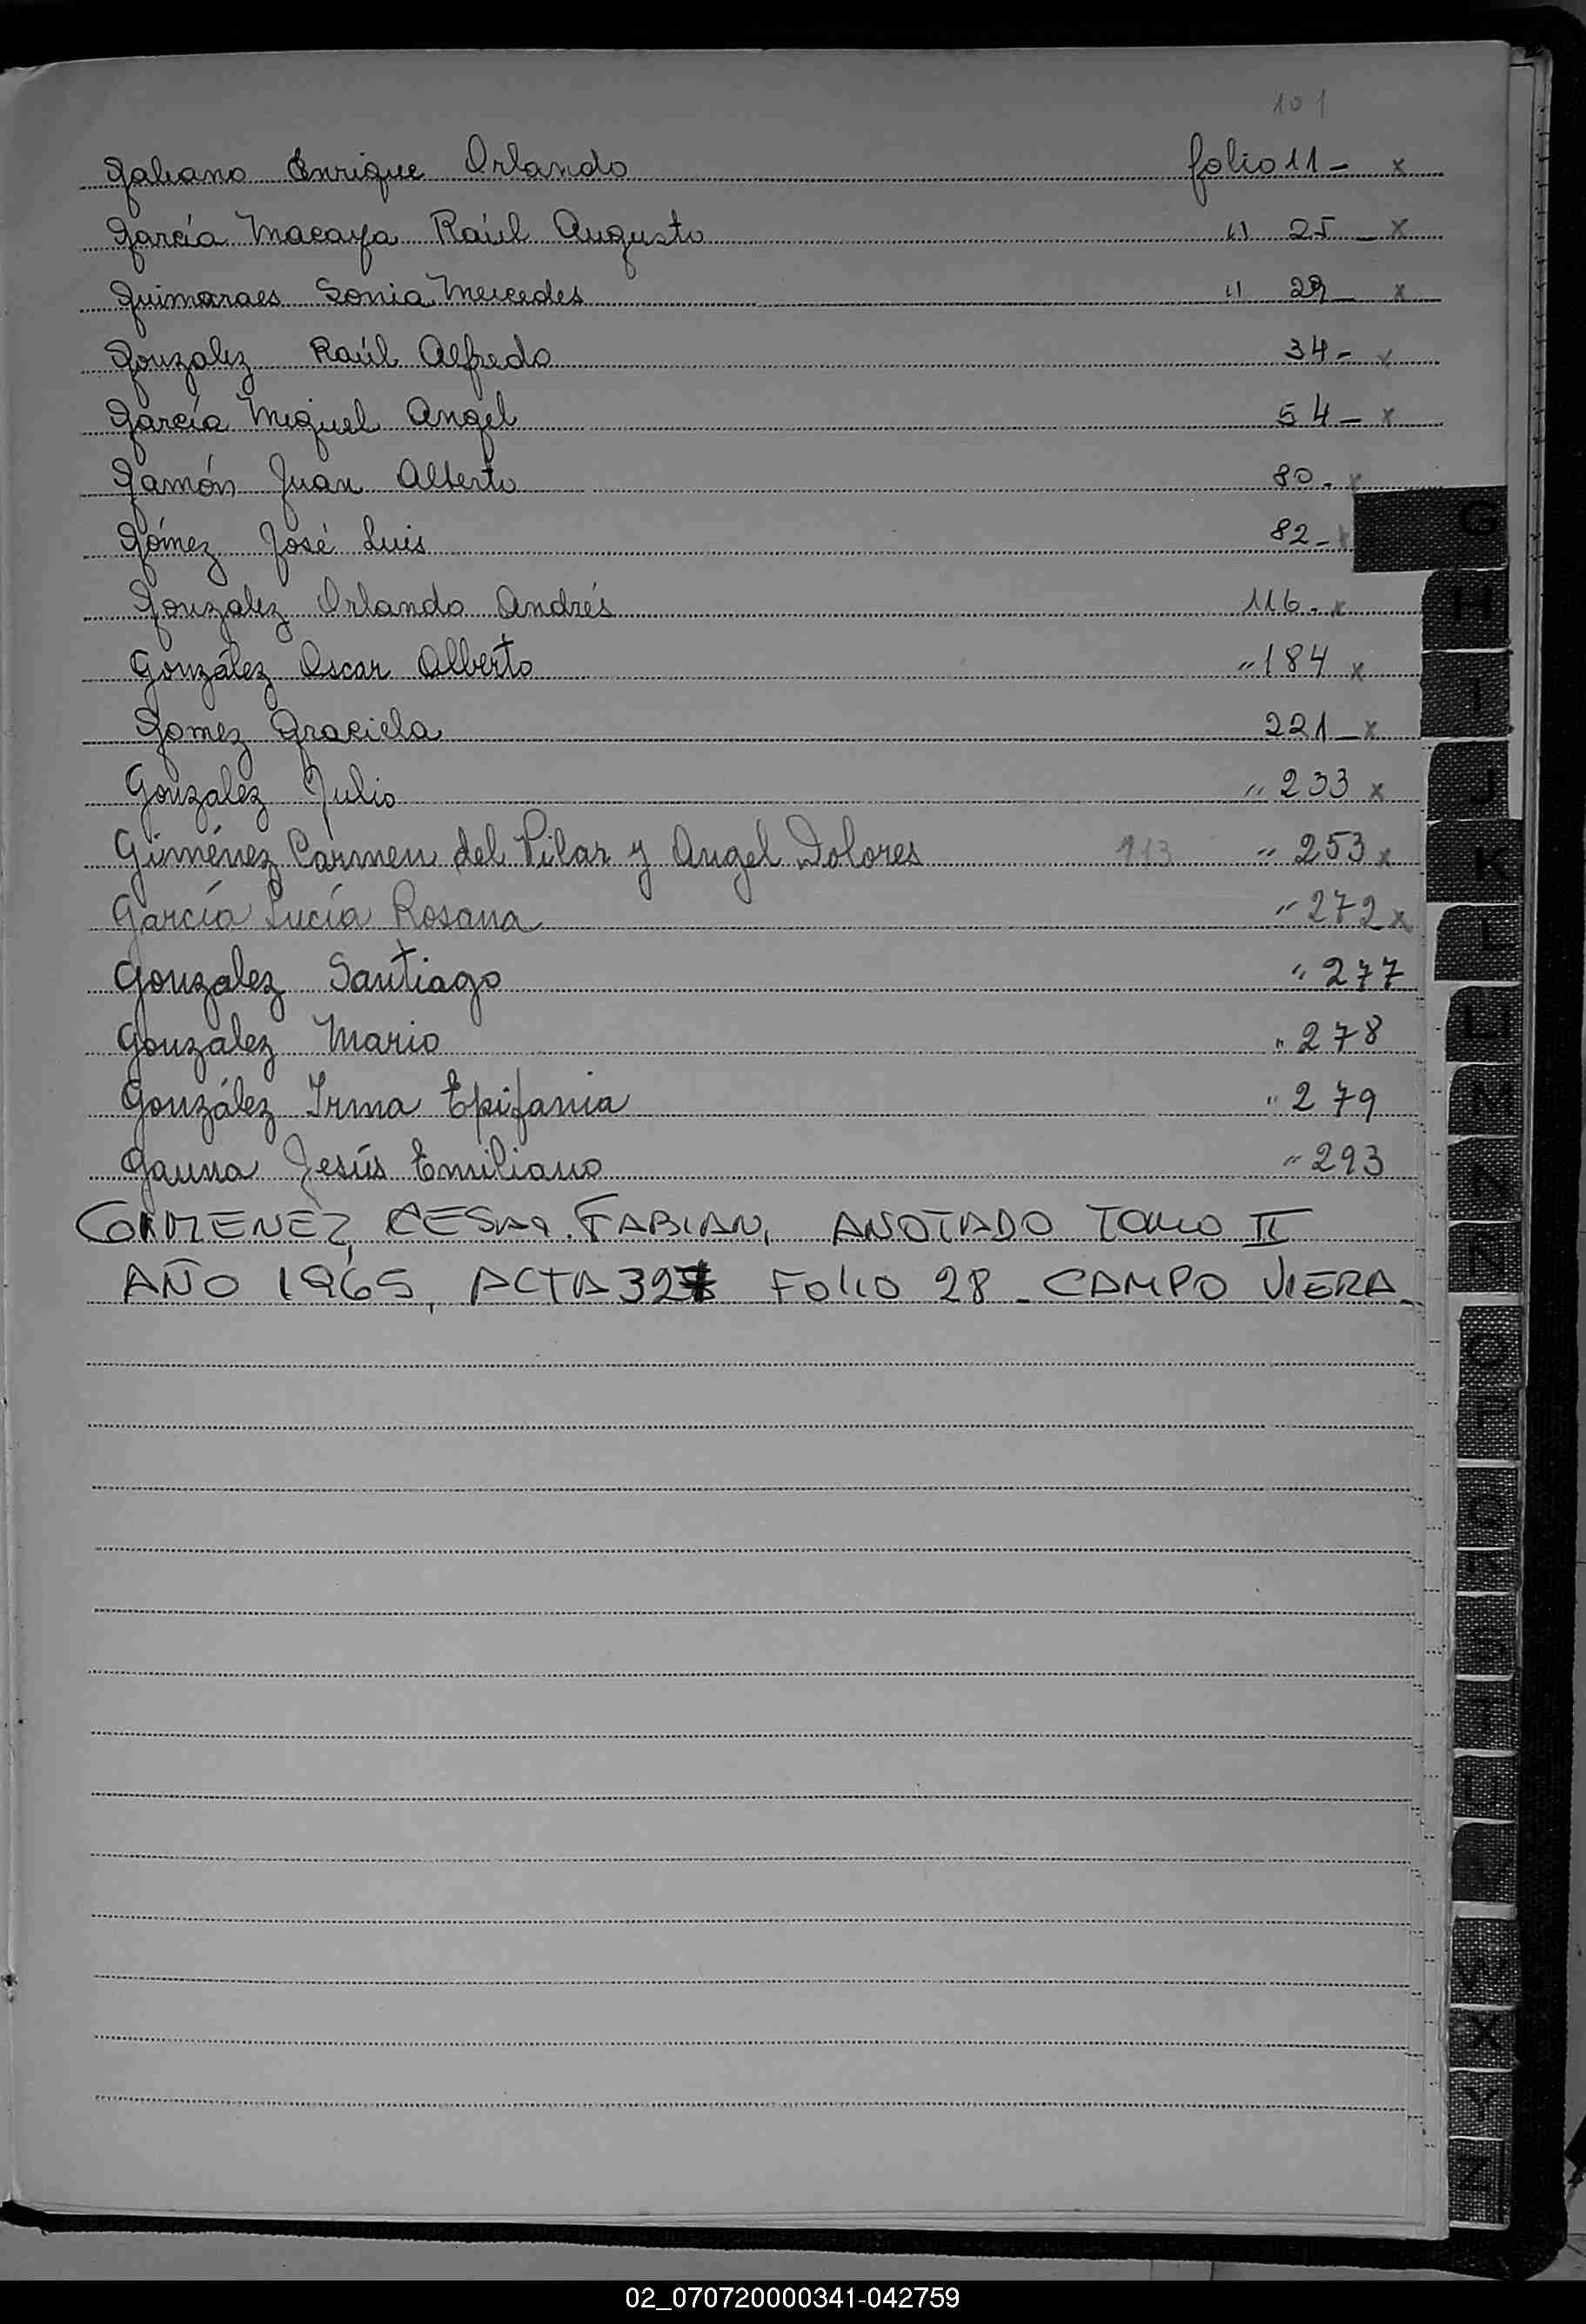 101
Galeano Enrique Orlando folio 11 - x
García Macaya Raúl Augusto " 25 - x
Guimaraes Sonia Mercedes " 29 - x
Gonzalez Raúl Alfredo 34 - x
García Miguel Angel 54 - x
Gamón Juan Alberto 80. x
Gómez José Luis 82 -
Gonzalez Orlando Andrés 116. x
González Oscar Alberto " 184 x
Gomez Graciela 221 - x
Gonzalez Julio " 233 x
Giménez Carmen del Pilar y Angel Dolores 113 " 253 x
García Lucía Rosana " 272 x
Gonzalez Santiago " 277
Gonzalez Mario " 278
González Irma Epifania " 279
Gauna Jesús Emiliano " 293
CESAR FABIAN, ANOTADO TOMO II
AÑO 1965, ACTA FOLIO 28 - CAMPO VIERA -
G
H
I
J
K
L
LL
M
N
Ñ
O
P
Q
R
S
T
U
V
W
X
Y
Z
02_070720000341-042759